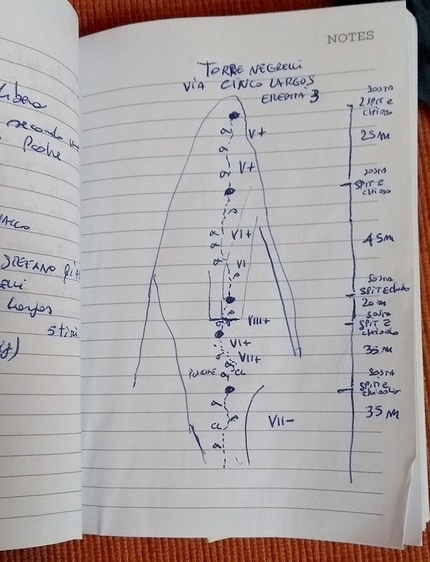 NOTES
TORRE NEGRELLI
VIA CINCO LARGOS
EREDITÀ 3
libero
secondo
Poche
STEFANO
largos
5 tiri
V+
V+
VI+
VI
VIII+
VI+
VII+
CL
CL
VII-
SOSTA
2 SPIT E
CHIODO
25 M
SOSTA
SPIT E
CHIODO
45 M
SOSTA
20 M
SOSTA
SPIT E
CHIODO
35 M
SOSTA
SPIT E
CHIODO
35 M